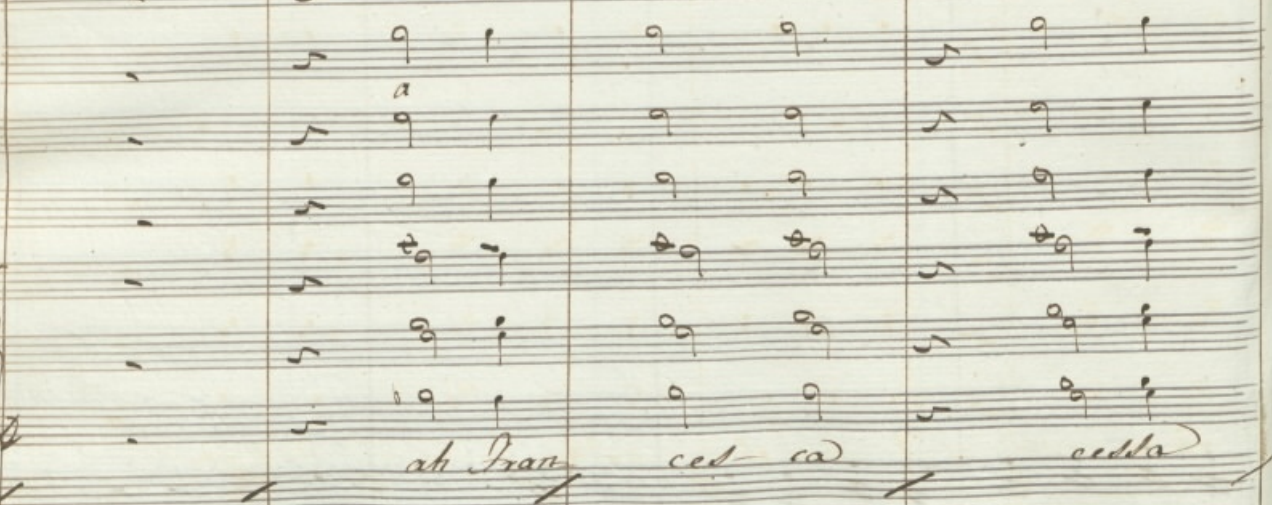 a
ah Fran ces - ca cessa